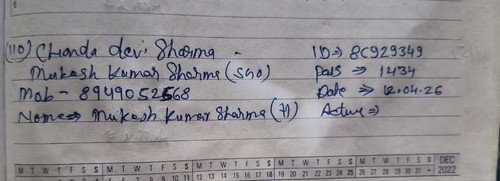 (110) Chanda devi Sharma - ID⇒ 8C929349
Mukesh Kumar Sharma (SGO) pass ⇒ 1434
Mob - 8949052568 Date ⇒ 12.04.26
Nome⇒ Mukesh Kumar Sharma (71) Active⇒
M T W T F S S M T W T F S S M T W T F S S M T W T F S S M T W T F S • DEC
12 13 14 15 16 17 18 19 20 21 22 23 24 25 26 27 28 29 30 31 2022